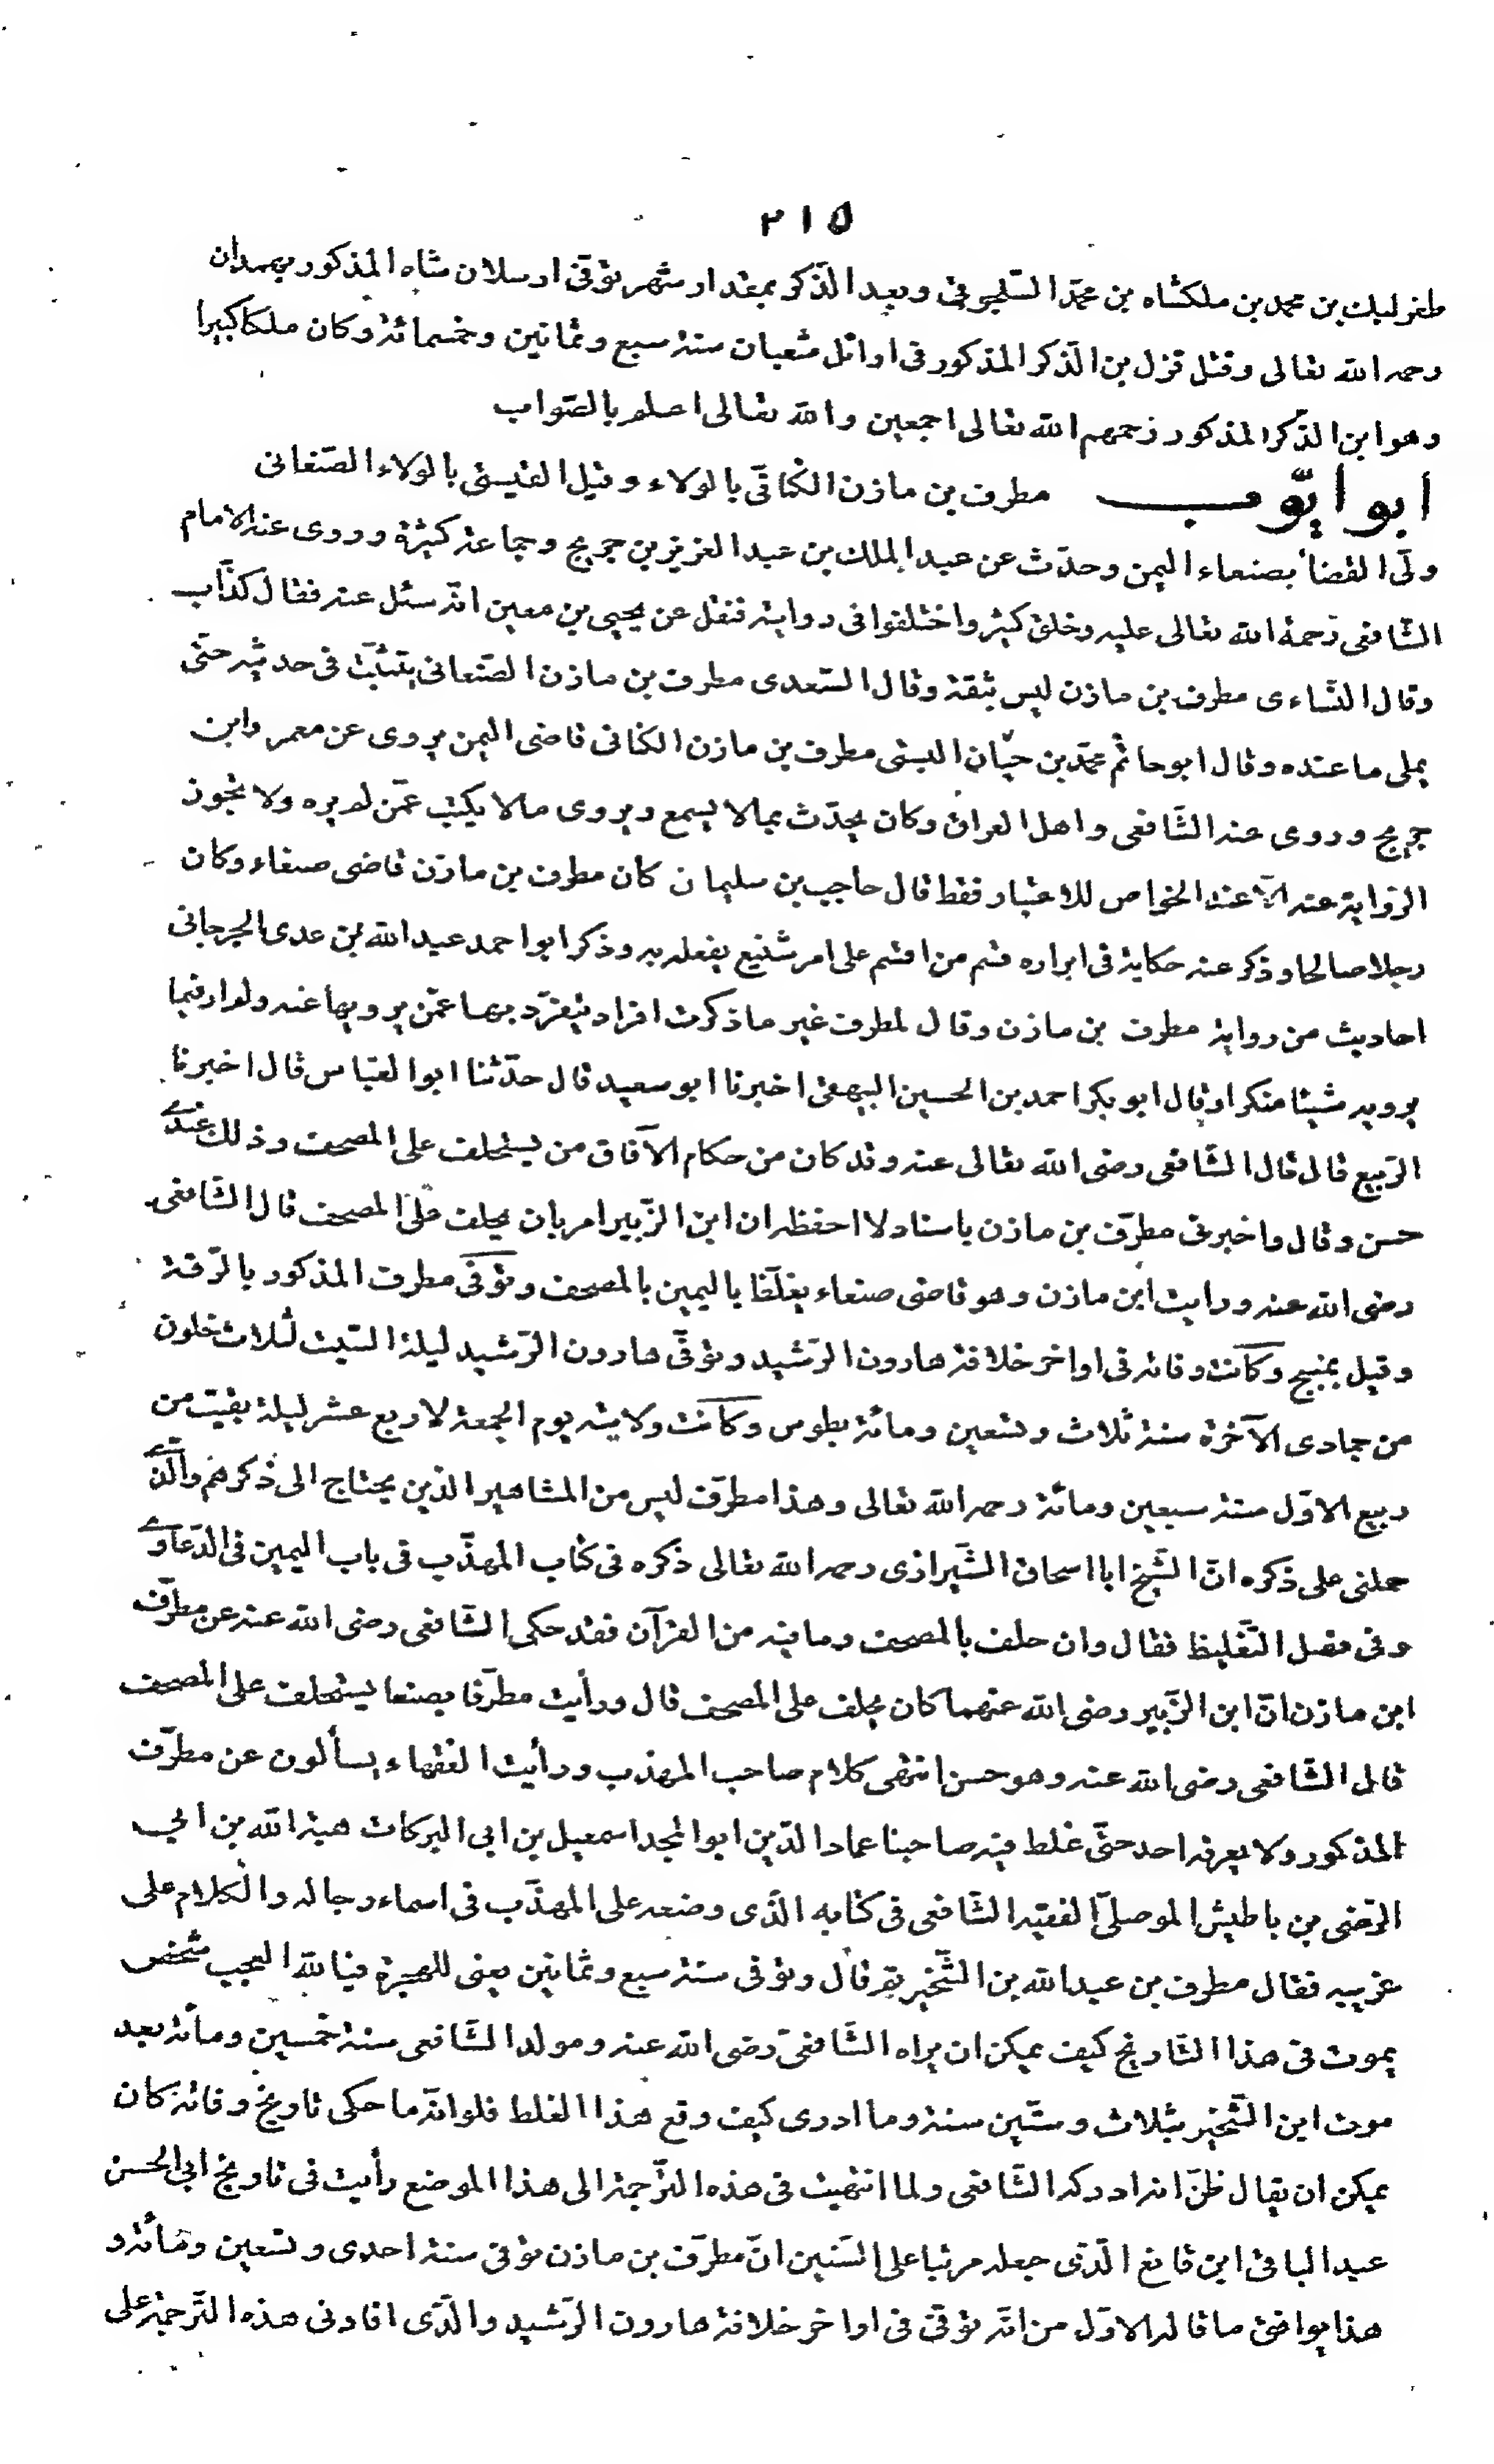 ٢١٥
طغرلبك بن محمد بن ملكشاه بن محمّد السّلجوقي وبعد الذّكر بمقدار شهر توقّى ارسلان شاه المذكور بهمدان
رحمه الله تعالى وقتل قزل بن الذّكر المذكور فى اوائل شعبان سنة سبع وثمانين وخمسمائة وكان ملكا كبيرا
وهو ابن الذّكر المذكور رحمهم الله تعالى اجمعين والله تعالى اعلم بالصّواب
ابو ايّوب مطرف بن مازن الكنانّى بالولاء وقيل القيسىّ بالولاء الصّنعانى
ولّى القضاء بصنعاء اليمن وحدّث عن عبد الملك بن عبد العزيز بن جريج وجماعة كثيرة وروى عنه الامام
الشّافعى رحمة الله تعالى عليه وخلق كثير واختلفوا فى روايته فنقل عن يحيى بن معين انّه سئل عنه فقال كذّاب
وقال النّساءى مطرف بن مازن ليس بثقة وقال السّعدى مطرف بن مازن الصّنعانى يتثبّت فى حديثه حتّى
يملى ما عنده وقال ابو حاتم محمّد بن حبّان البستى مطرف بن مازن الكنانى قاضى اليمن يروى عن معمر وابن
جريج وروى عنه الشّافعى واهل العراق وكان يحدّث بمالا يسمع ويروى مالا يكتب عمّن لم يره ولا تجوز
الرّواية عنه الّا عند الخواص للاعتبار فقط قال حاجب بن سليمان كان مطرف بن مازن قاضى صنعاء وكان
رجلا صالحا وذكر عنه حكاية فى ابراره قسم من اقسم على امر شنيع يفعله به وذكر ابو احمد عبد الله بن عدى الجرجانى
احاديث من رواية مطرف بن مازن وقال لمطرف غير ما ذكرت افراد يتفرّد بها عمّن يرويها عنه ولم ار فيما
يرويه شيئا منكرا وقال ابو بكر احمد بن الحسين البيهقى اخبرنا ابو سعيد قال حدّثنا ابو العبّاس قال اخبرنا
الرّبيع قال قال الشّافعى رضى الله تعالى عنه وقد كان من حكام الآفاق من يستحلف على المصحف وذلك عندے
حسن وقال واخبرنى مطرّف بن مازن باسناد لا احفظه ان ابن الزّبير امر بان يحلف على المصحف قال الشّافعى
رضى الله عنه ورايت ابن مازن وهو قاضى صنعاء يغلّظ باليمين بالمصحف وتوفّى مطرف المذكور بالرّقة
وقيل بمنبج وكانت وفاته فى اواخر خلافة هارون الرّشيد وتوفّى هارون الرّشيد ليلة السّبت لثلاث خلون
من جمادى الآخرة سنة ثلاث وتسعين ومائة بطوس وكانت ولايته يوم الجمعة لاربع عشر ليلة بقيت من
ربيع الاوّل سنة سبعين ومائة رحمه الله تعالى وهذا مطرّف ليس من المشاهير الذين يحتاج الى ذكرهم والّذے
حملنى على ذكره انّ الشّيخ ابا اسحاق الشّيرازى رحمه الله تعالى ذكره فى كتاب المهذّب فى باب اليمين فى الدّعاوے
وفى فصل التّغليظ فقال وان حلف بالمصحف وما فيه من القرآن فقد حكى الشّافعى رضى الله عنه عن مطرّف
ابن مازن انّ ابن الزّبير رضى الله عنهما كان يحلف على المصحف قال ورأيت مطرّفا بصنعا يستحلف على المصحف
قال الشّافعى رضى الله عنه وهو حسن انتهى كلام صاحب المهذب ورأيت الفقهاء يسألون عن مطرّف
المذكور ولا يعرفه احد حتّى غلط فيه صاحبنا عماد الدّين ابو المجد اسمعيل بن ابى البركات هبة الله بن ابى
الرّضى بن باطيش الموصلىّ الفقيه الشّافعى فى كتابه الّذى وضعه على المهذّب فى اسماء رجاله والكلام على
غريبه فقال مطرف بن عبد الله بن الشّخّير ثمّ قال وتوفى سنة سبع وثمانين يعنى للهجرة فيا لله العجب شخص
يموت فى هذا التّاريخ كيف يمكن ان يراه الشّافعىّ رضى الله عنه ومولد الشّافعى سنة خمسين ومائة بعد
موت ابن الشّخّير بثلاث وستّين سنة وما ادرى كيف وقع هذا الغلط فلو انّه ما حكى تاريخ وفاته كان
يمكن ان يقال ظنّ انه ادركه الشّافعى ولما انتهيت فى هذه التّرجمة الى هذا الموضع رأيت فى تاريخ ابى الحسن
عبد الباقى ابن قانع الّذى جعله مرتبا على السّنين انّ مطرّف بن مازن توفى سنة احدى وتسعين ومائة و
هذا يوافق ما قاله الاوّل من انّه توفّى فى اواخر خلافة هارون الرّشيد والّذى افادنى هذه التّرجمة على